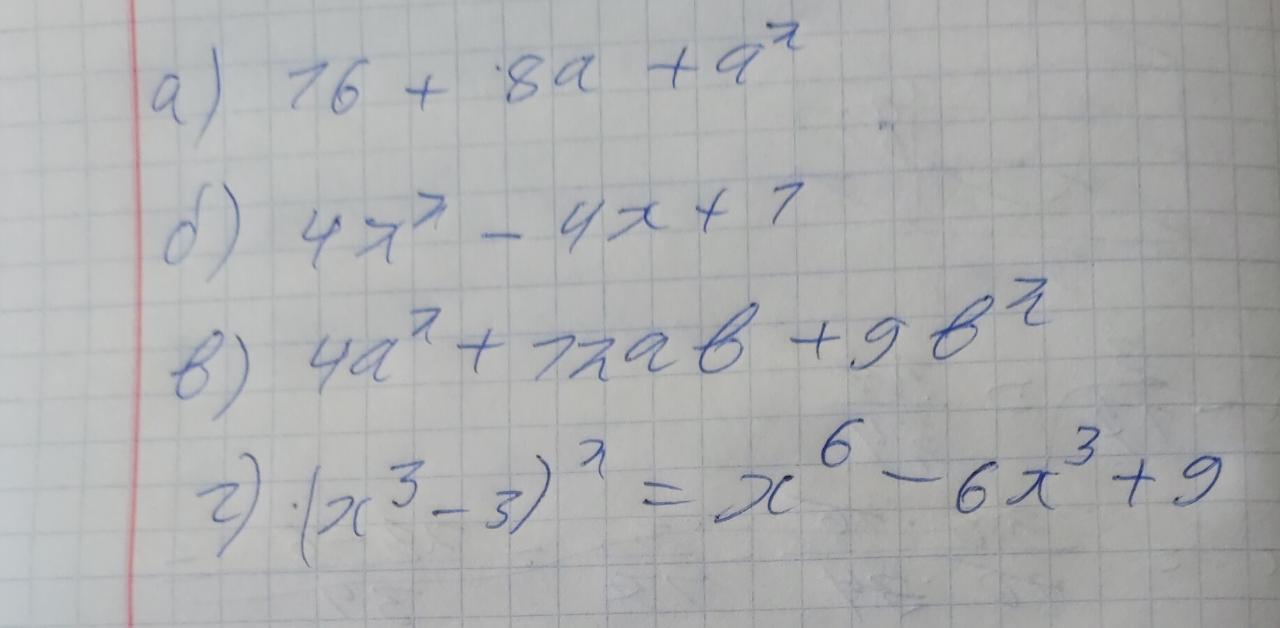 а) 16 + 8a + a²
б) 4x² - 4x + 1
в) 4a² + 12ab + 9b²
г) (x³ - 3)² = x⁶ - 6x³ + 9